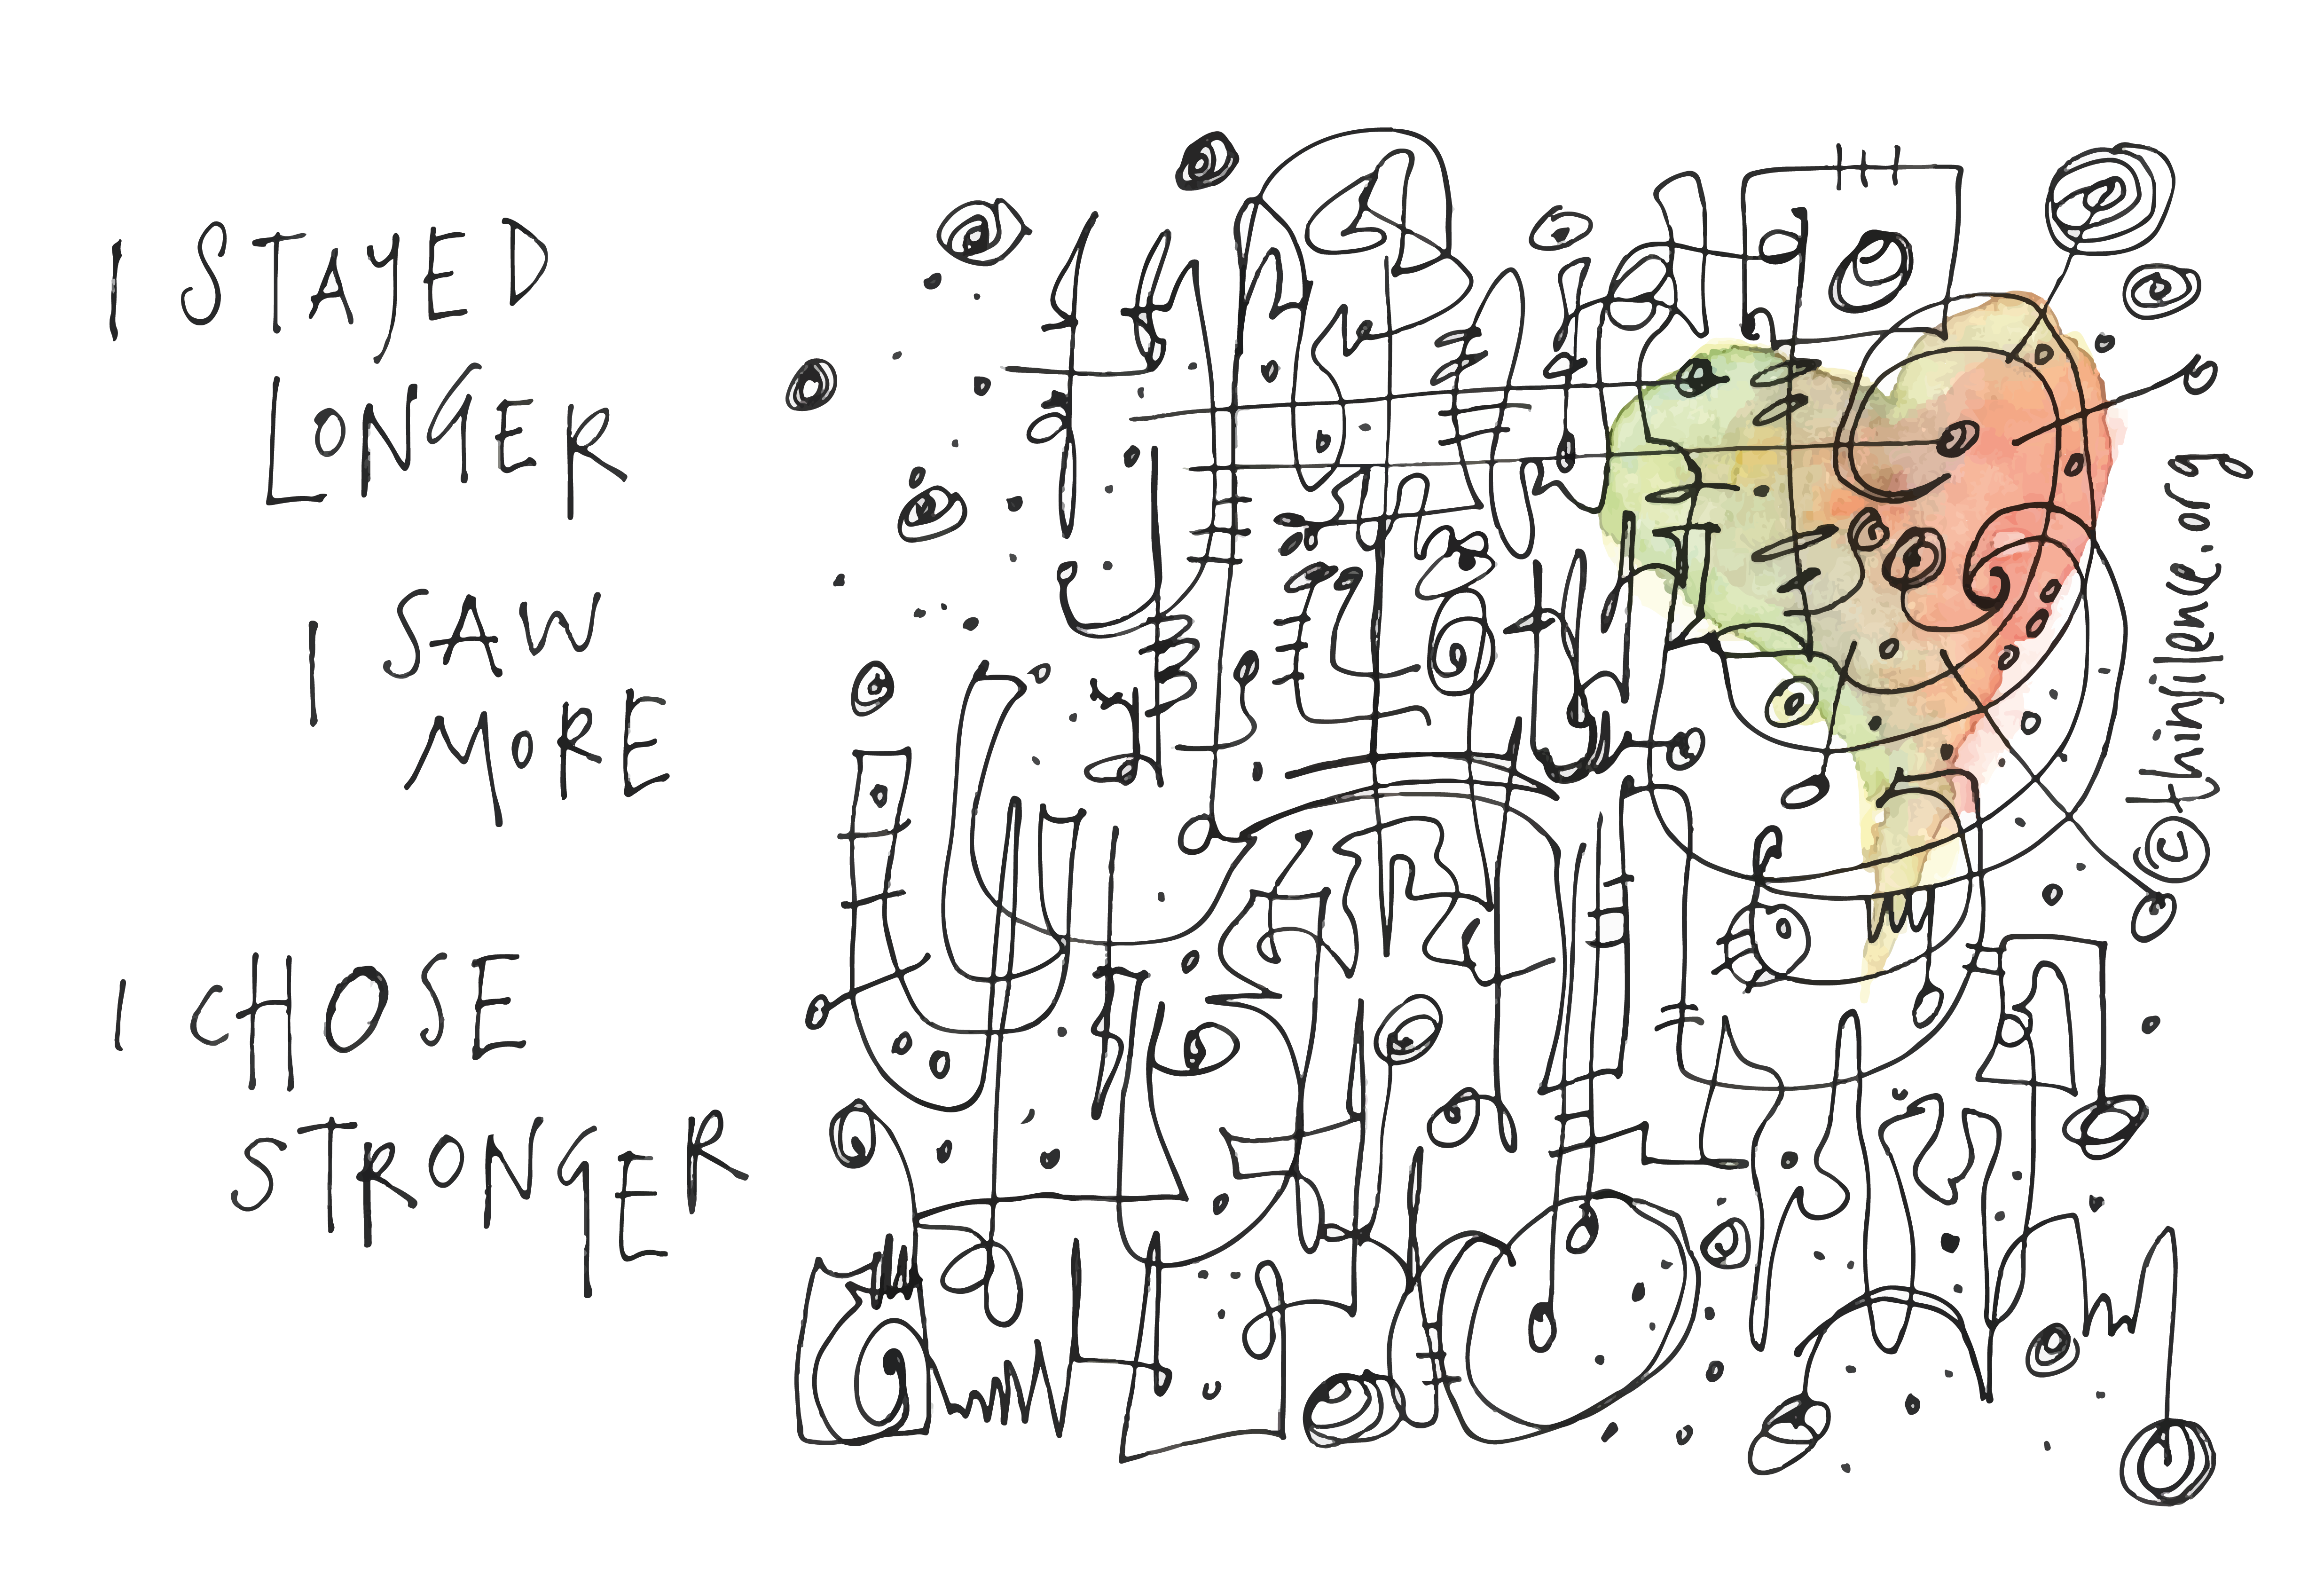 I STAYED
LONGER
I SAW
MORE
I CHOSE
STRONGER
©thinjience.org